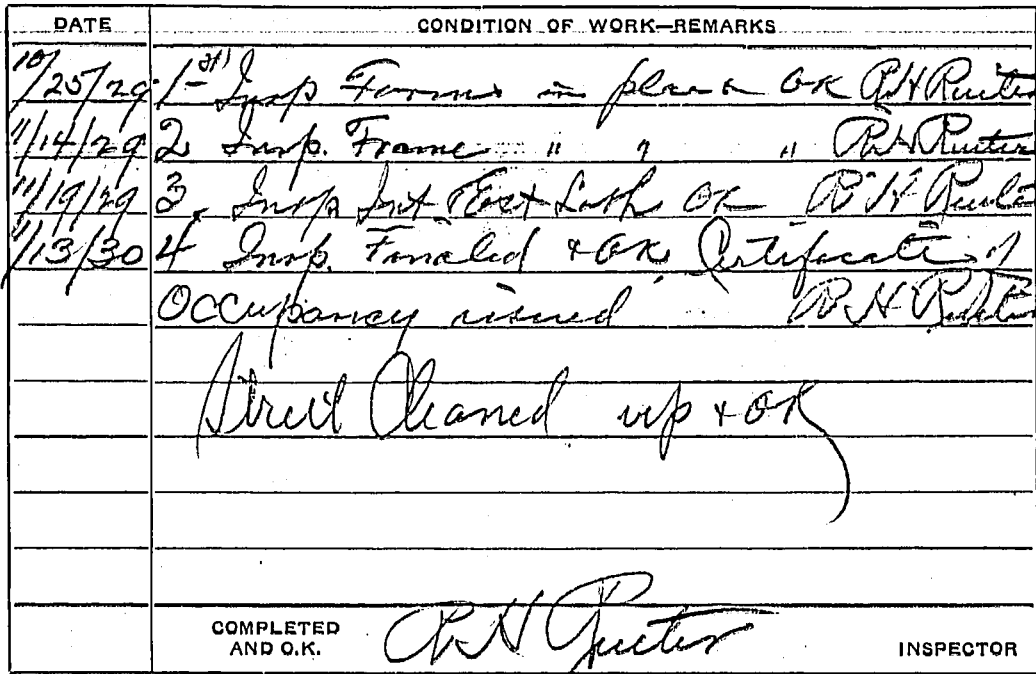 DATE CONDITION OF WORK—REMARKS
10/25/29 1-st Insp Forms in place OK R H Rueter
11/14/29 2 Insp. Frame " " " R H Rueter
11/19/29 3. Insp Int & Ext Lath OK R H Rueter
1/13/30 4 Insp. Finaled & OK Certificate of
Occupancy issued R H Rueter
Street Cleaned up & OK
COMPLETED AND O.K. R H Rueter INSPECTOR